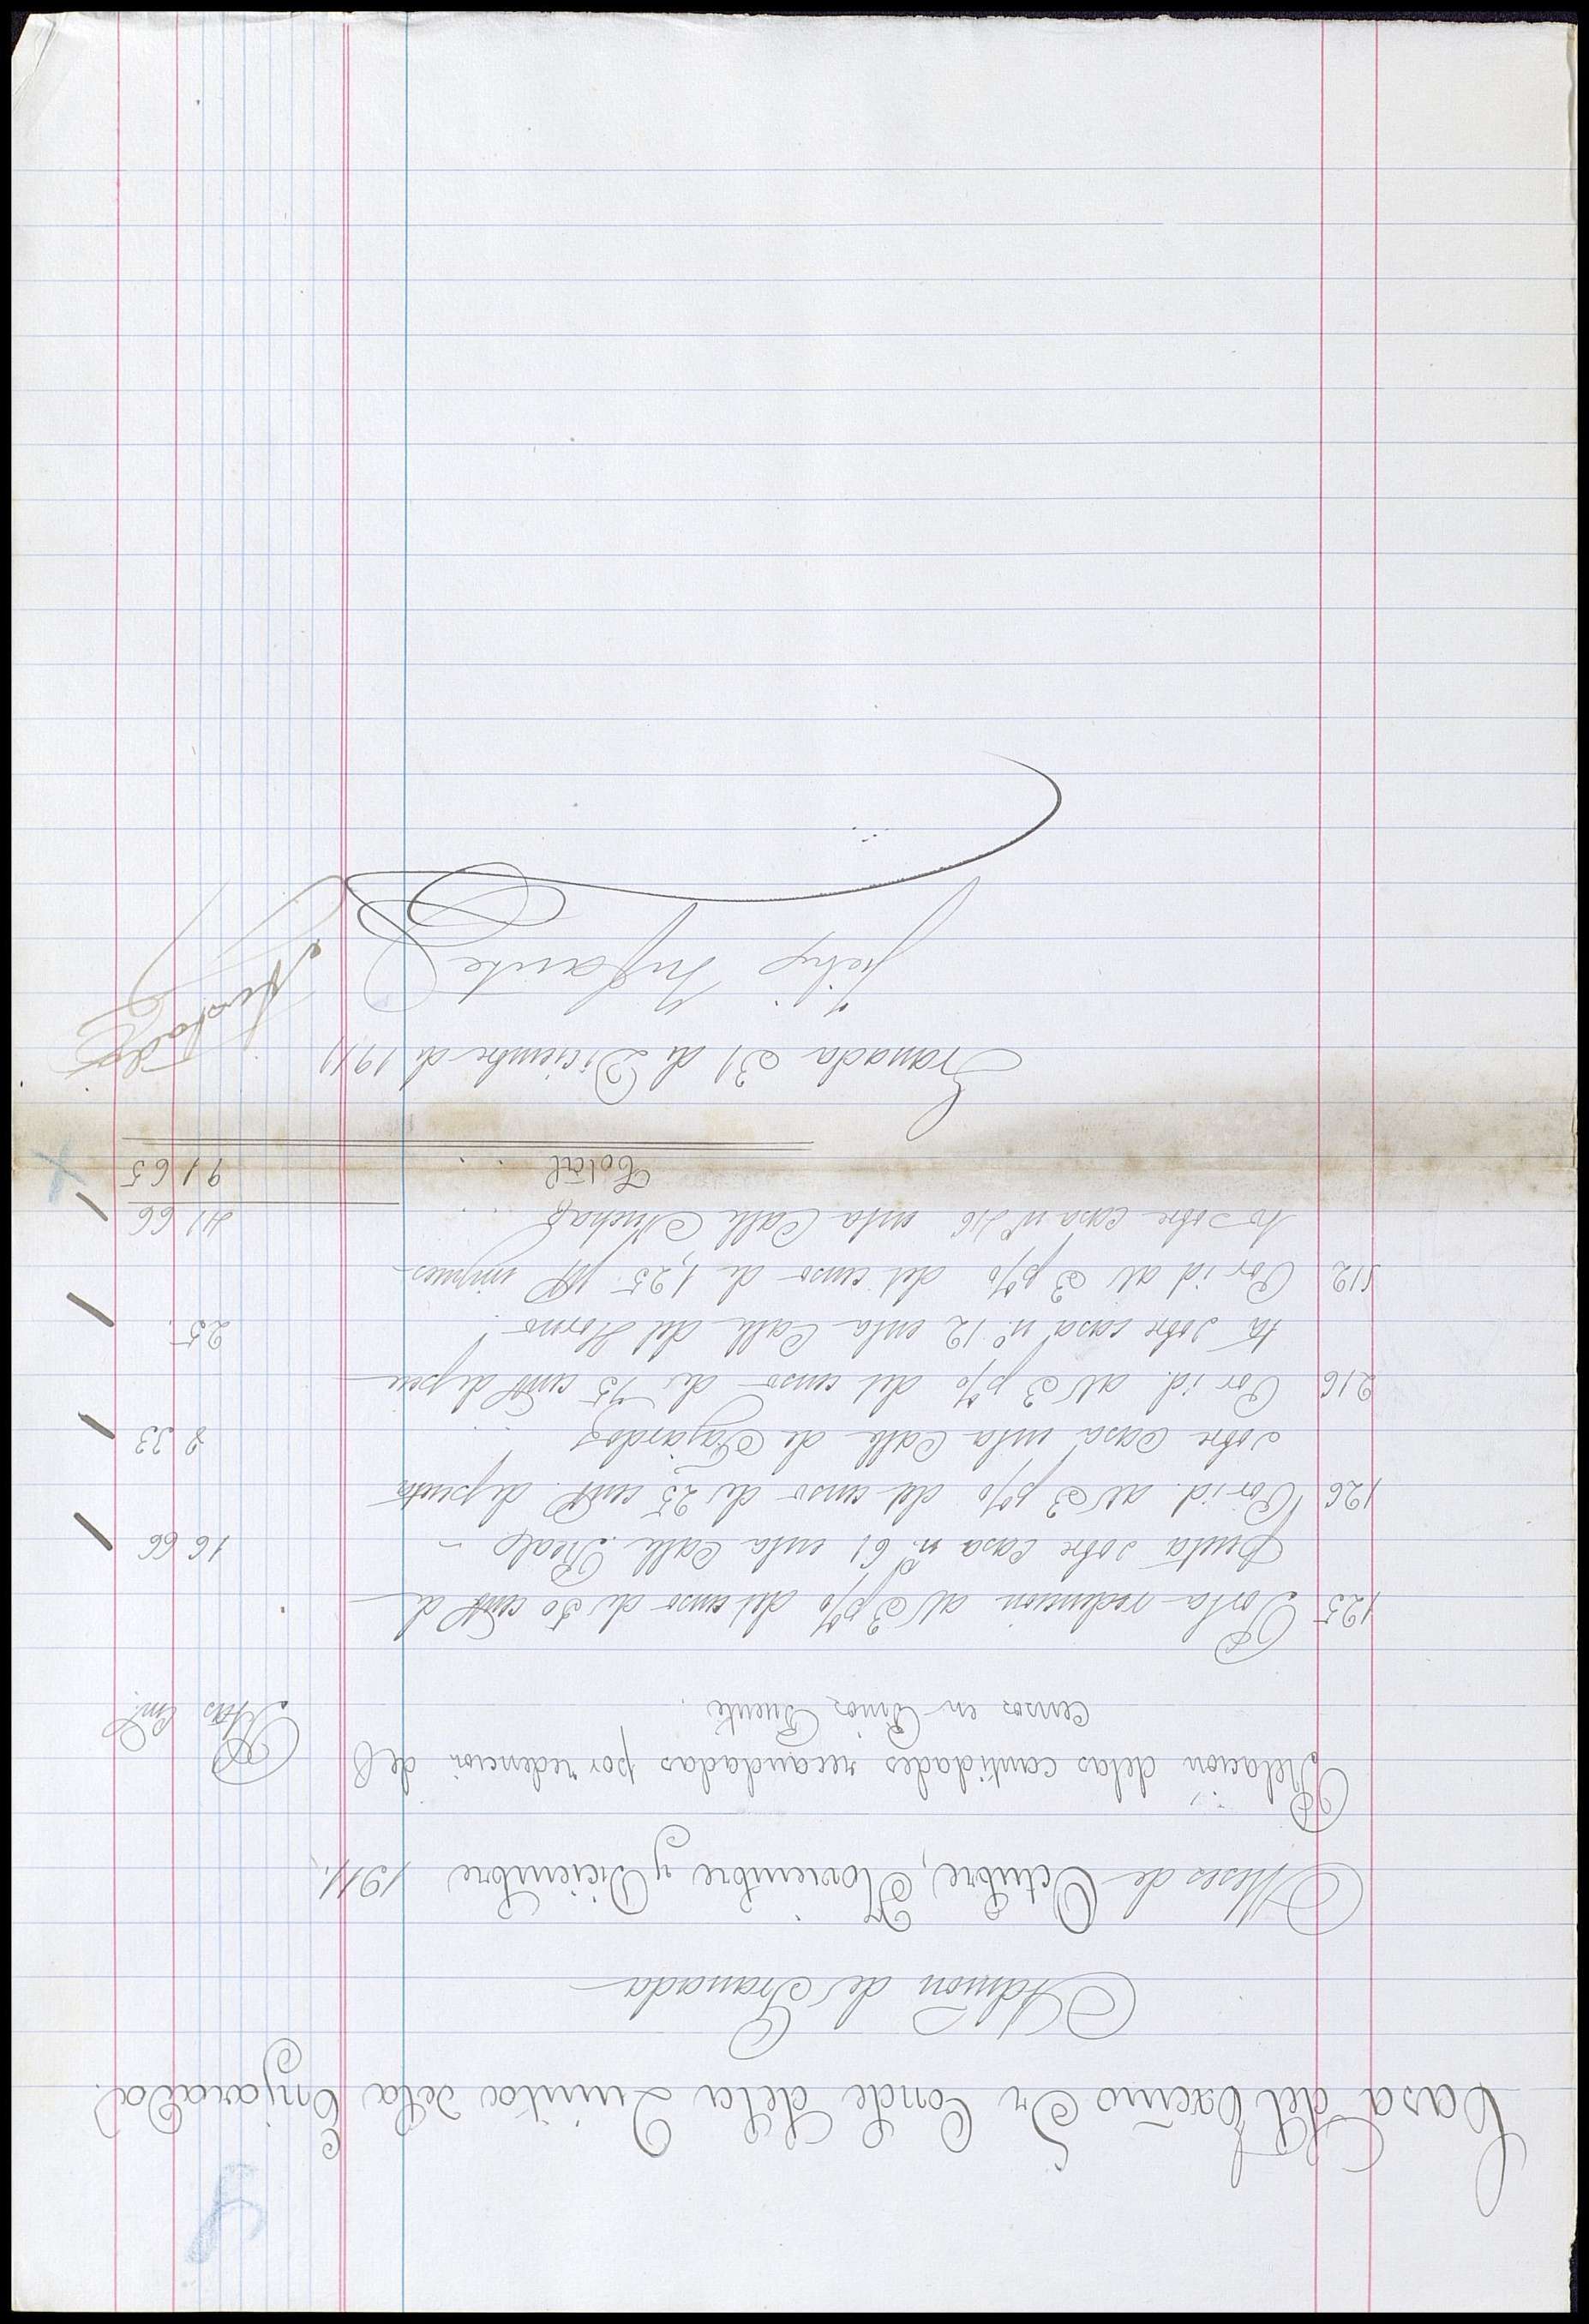 4
Casa del Excmo Sr Conde dela Quinta dela Enjarada.
Admon de Granada
Meses de Octubre, Noviembre y Diciembre 1911.
Relacion delas cantidades recaudadas por redencion de
censos en Pinos Puente. Ptas Cent.
125 Porla redencion al 3 p% del censo de 50 cent de
peseta sobre casa n.º 61 enla Calle Real 16 66
126 Por id. al 3 p% del censo de 25 cent. de peseta
sobre casa enla Calle de Fajardo 8 33
216 Por id. al 3 p% del censo de 75 cent de pese
ta sobre casa n.º 12 enla Calle del Horno 25.
512 Por id al 3 p% del censo de 1,25 pts impues-
to sobre casa nº 46 enla Calle Ancha 41 66
Total 91 65
Granada 31 de Diciembre de 1911
Infante